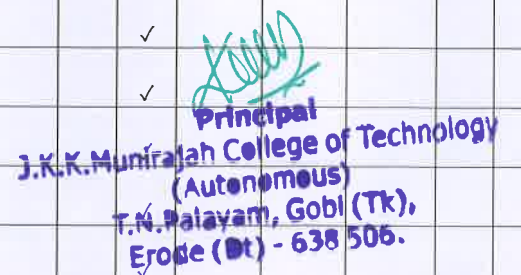 ✓
✓
Principal
J.K.K.Munirajah College of Technology
(Autonomous)
T.N.Palayam, Gobi (Tk),
Erode (Dt) - 638 506.